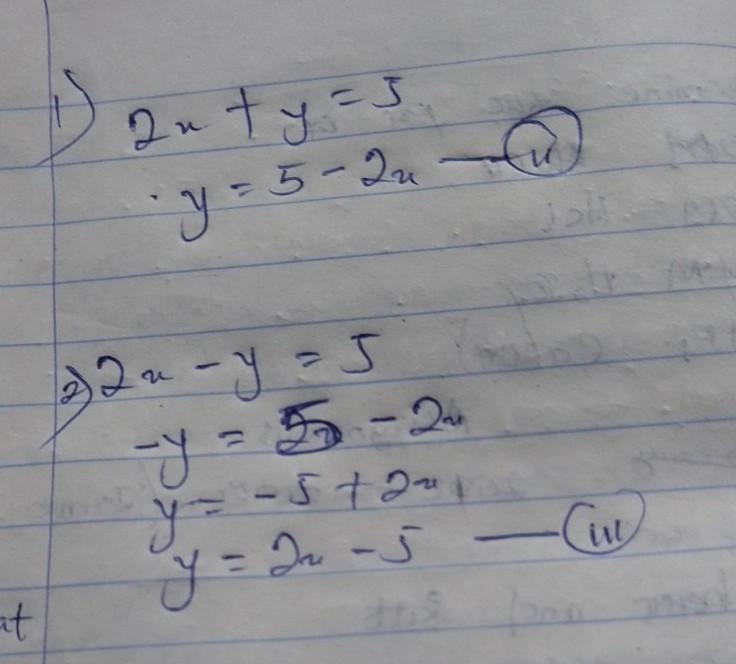 1) 2x + y = 5
y = 5 - 2x — (ii)
2) 2x - y = 5
-y = 5 - 2x
y = -5 + 2x
y = 2x - 5 — (iii)
at